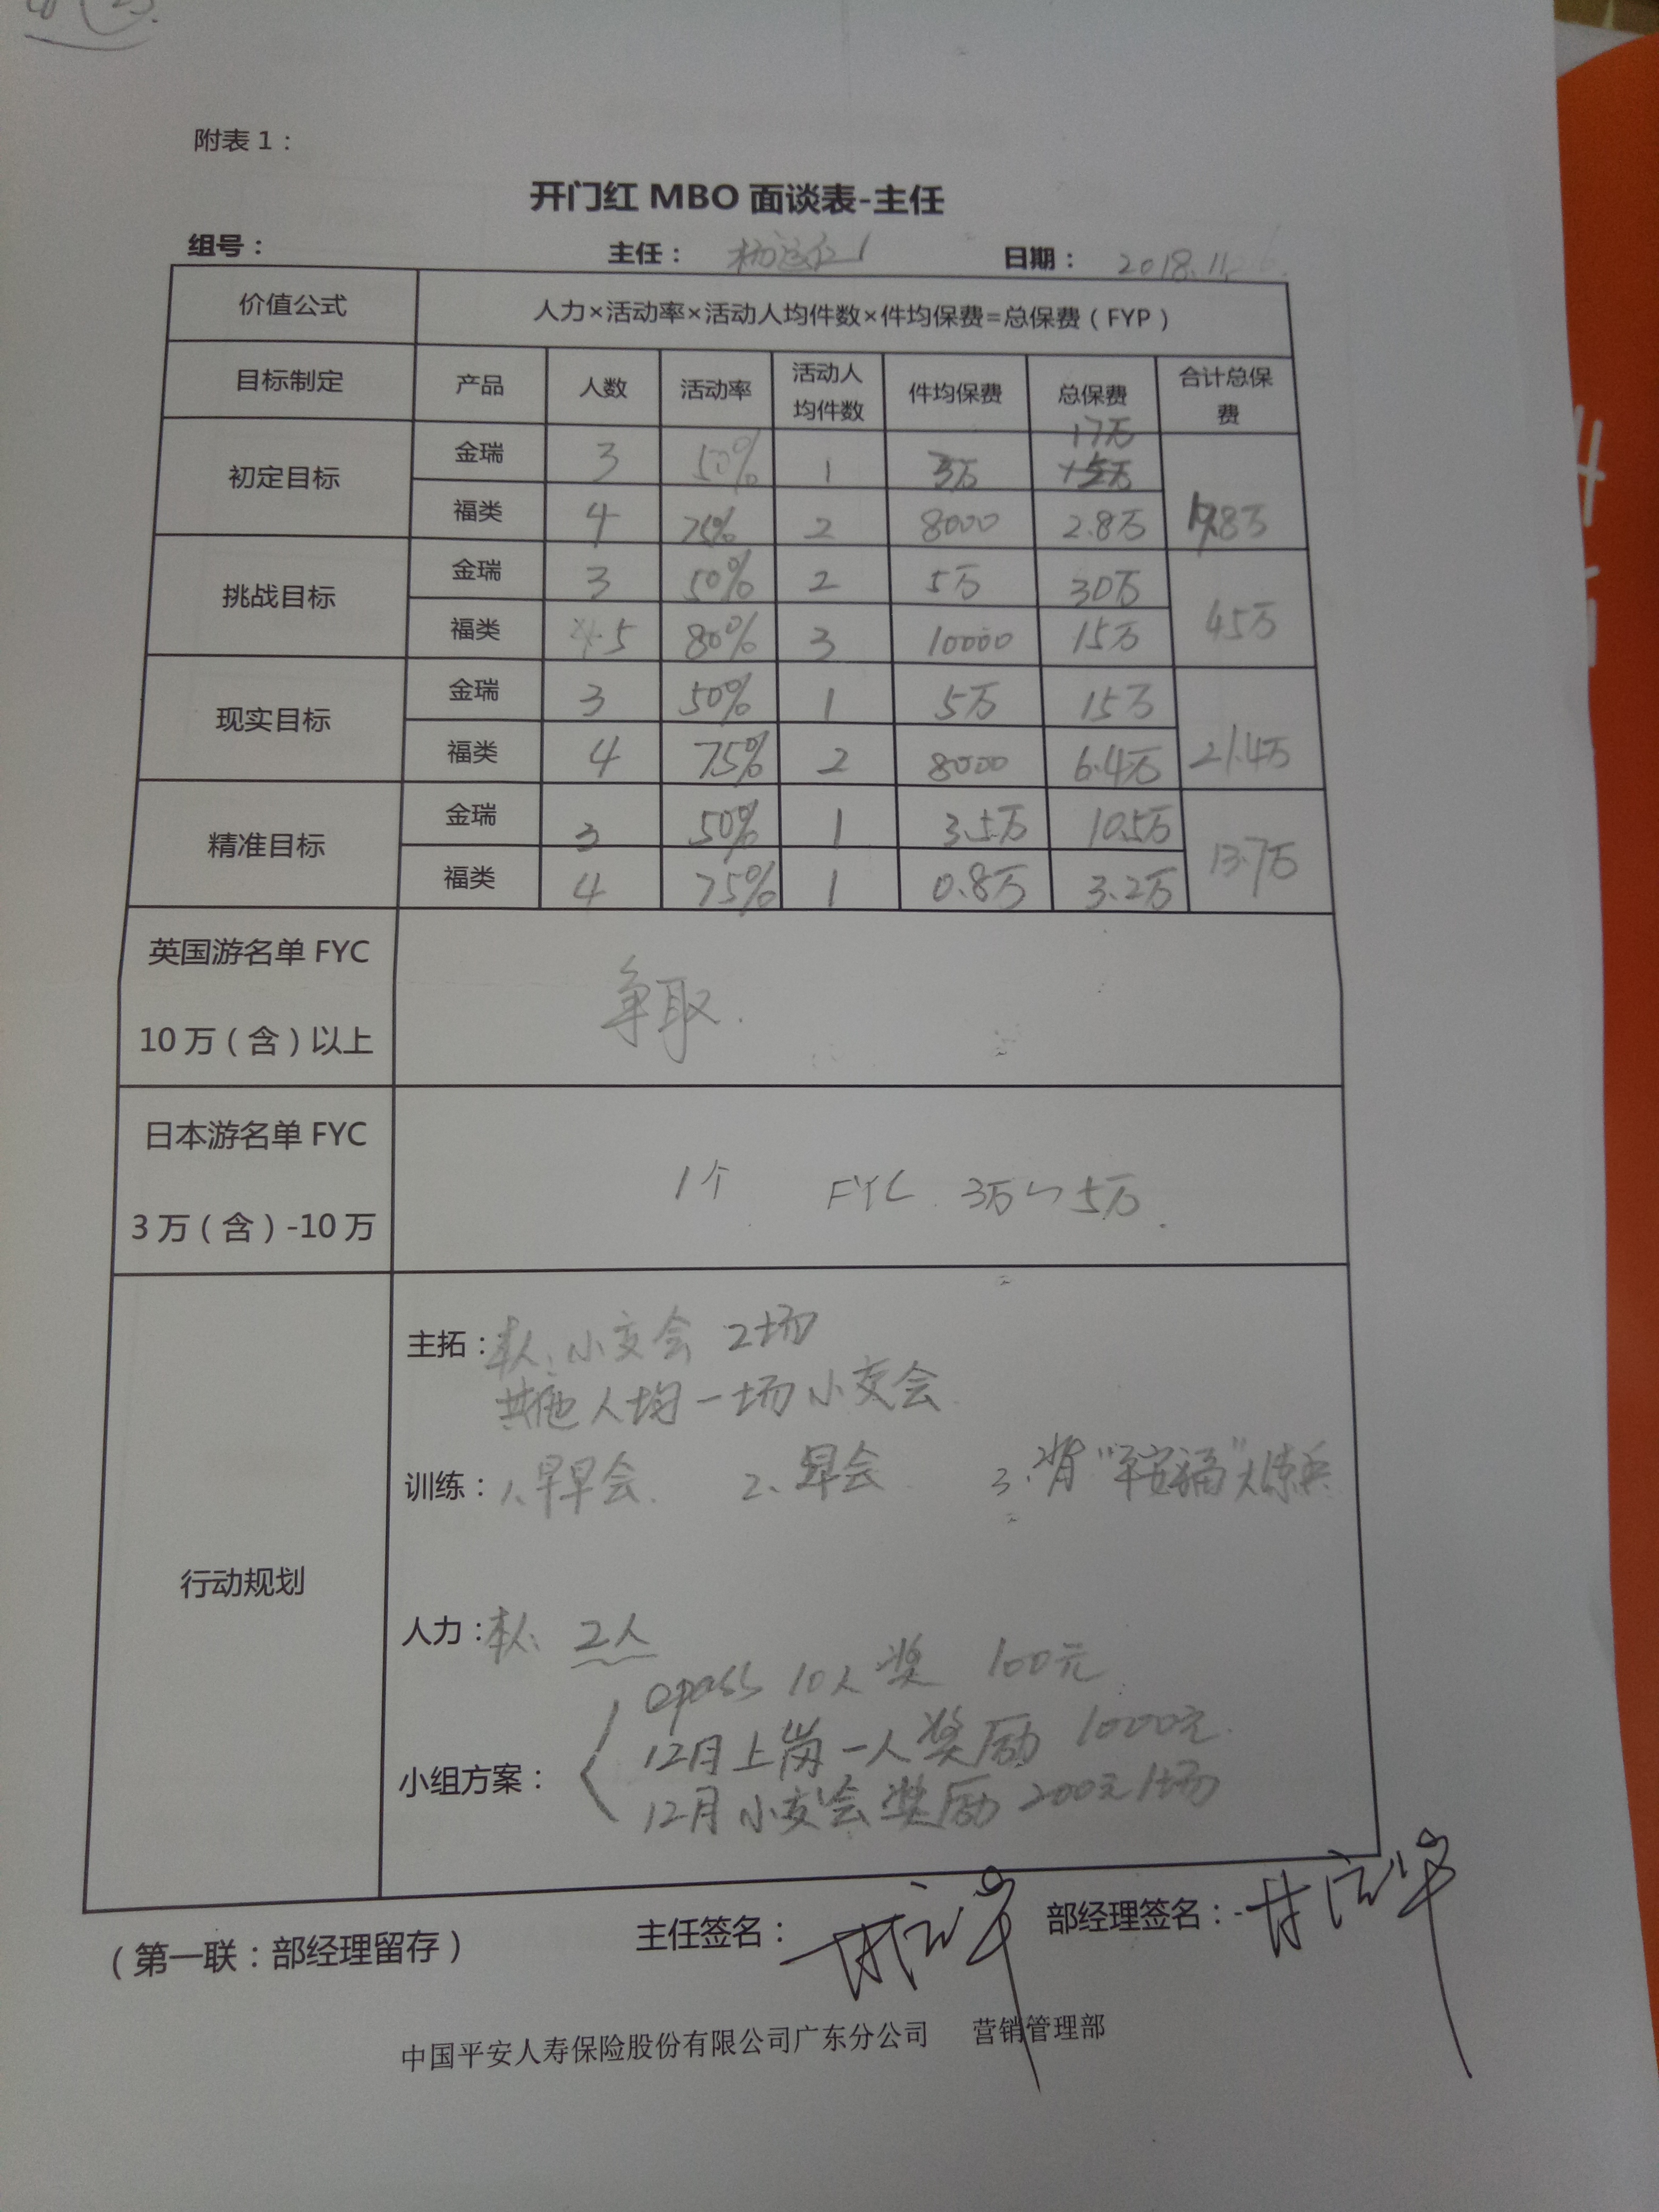 附表 1：
开门红 MBO 面谈表-主任
组号： 主任： 日期： 2018.11.
价值公式 人力×活动率×活动人均件数×件均保费=总保费（FYP）
目标制定 产品 人数 活动率 活动人均件数 件均保费 总保费 合计总保费
初定目标 金瑞 3 50% 1 3万 17万
福类 4 75% 2 8000 2.8万
挑战目标 金瑞 3 50% 2 5万 30万 45万
福类 5 80% 3 10000 15万
现实目标 金瑞 3 50% 1 5万 15万 21.4万
福类 4 75% 2 8000 6.4万
精准目标 金瑞 3 50% 1 3.5万 10.5万 13.7万
福类 4 75% 1 0.8万 3.2万
英国游名单 FYC
10 万（含）以上
争取.
日本游名单 FYC
3 万（含）-10 万
1个 FYC 3万~5万.
行动规划
主拓：本人：小交会 2场
其他人均一场小交会.
训练：1、早早会. 2、早会 3、背“平安福”大练兵
人力：本人：2人
小组方案：
epass 10人奖 100元
12月上岗一人奖励 1000元
12月小交会奖励 200元1场
（第一联：部经理留存） 主任签名： 部经理签名：
中国平安人寿保险股份有限公司广东分公司 营销管理部